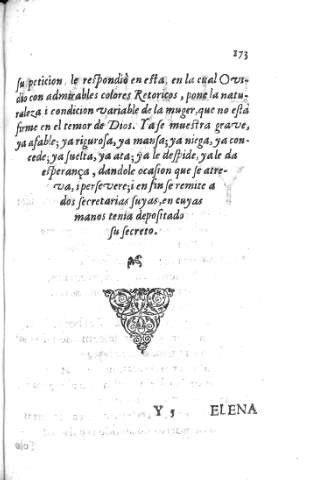 173
su peticion le respondiò en esta, en la cual Ovi-
dio con admirables colores Retoricos, pone la natu-
raleza i condicion variable de la muger, que no està
firme en el temor de Dios. Ya se muestra grave,
ya afable; ya rigurosa, ya mansa; ya niega, ya con-
cede; ya suelta, ya ata; ya le despide, ya le da
esperança, dandole ocasion que se atre-
va, i persevere; i en fin se remite a
dos secretarias suyas, en cuyas
manos tenia depositado
su secreto.
Y 5 ELENA